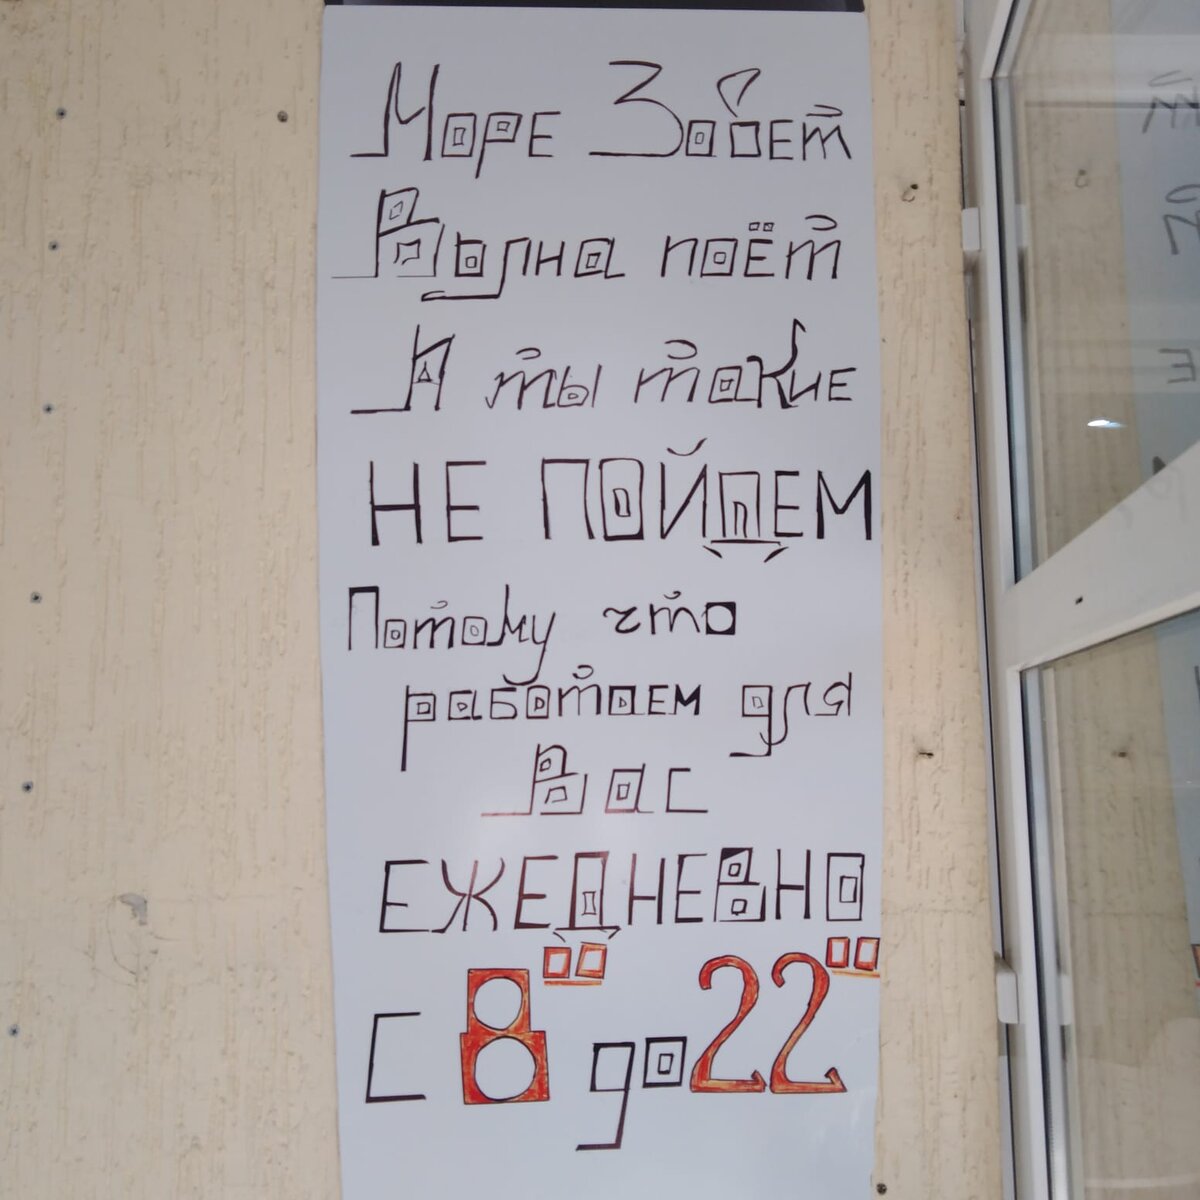 Море Зовет
Волна поёт
А ты такие
НЕ ПОЙДЕМ
Потому что
работаем для
Вас
ЕЖЕДНЕВНО
С 8 00 до 22 00